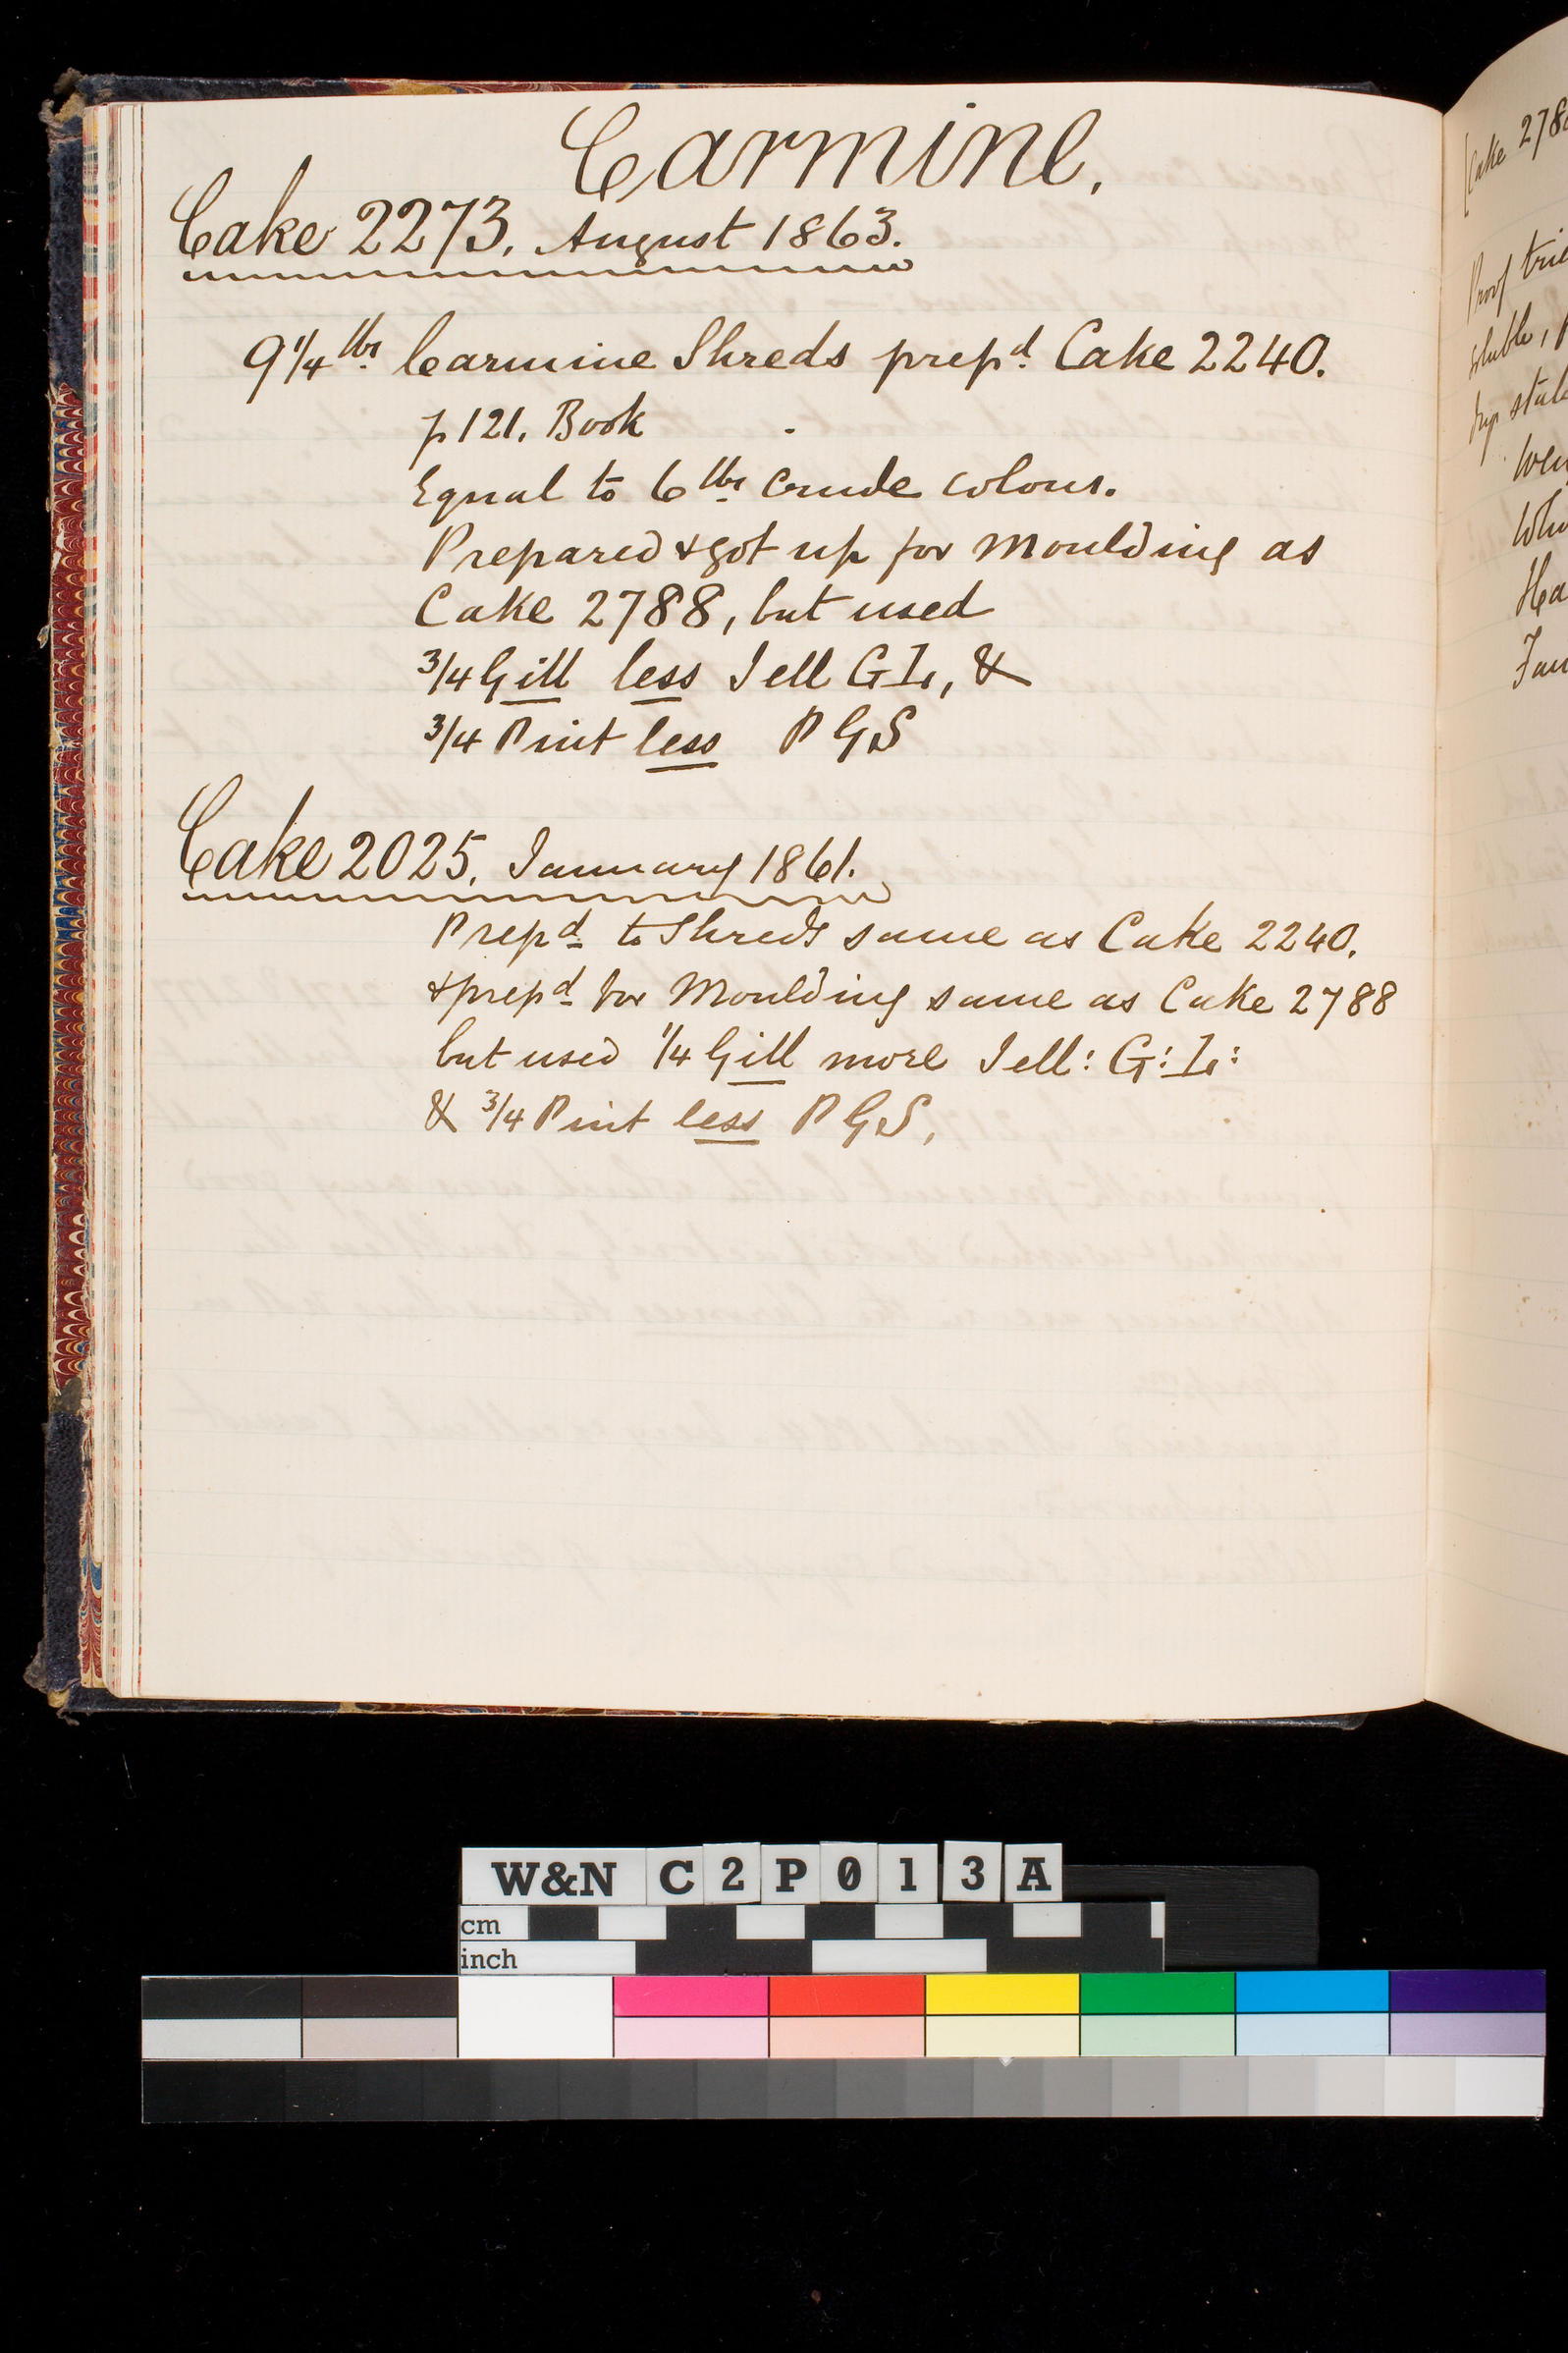 Carmine.
Cake 2273. August 1863.
9 1/4 lbs. Carmine Shreds prepd. Cake 2240.
p 121. Book
Equal to 6 lbs. crude colour.
Prepared & got up for Moulding as
Cake 2788, but used
3/4 Gill less Jell GL, &
3/4 Pint less P G S
Cake 2025. January 1861.
Prepd. to Shreds same as Cake 2240.
& prepd. for Moulding same as Cake 2788
but used 1/4 Gill more Jell: G: L:
& 3/4 Pint less P G S,
Cake 278
Proof
W&N C2P013A
cm
inch